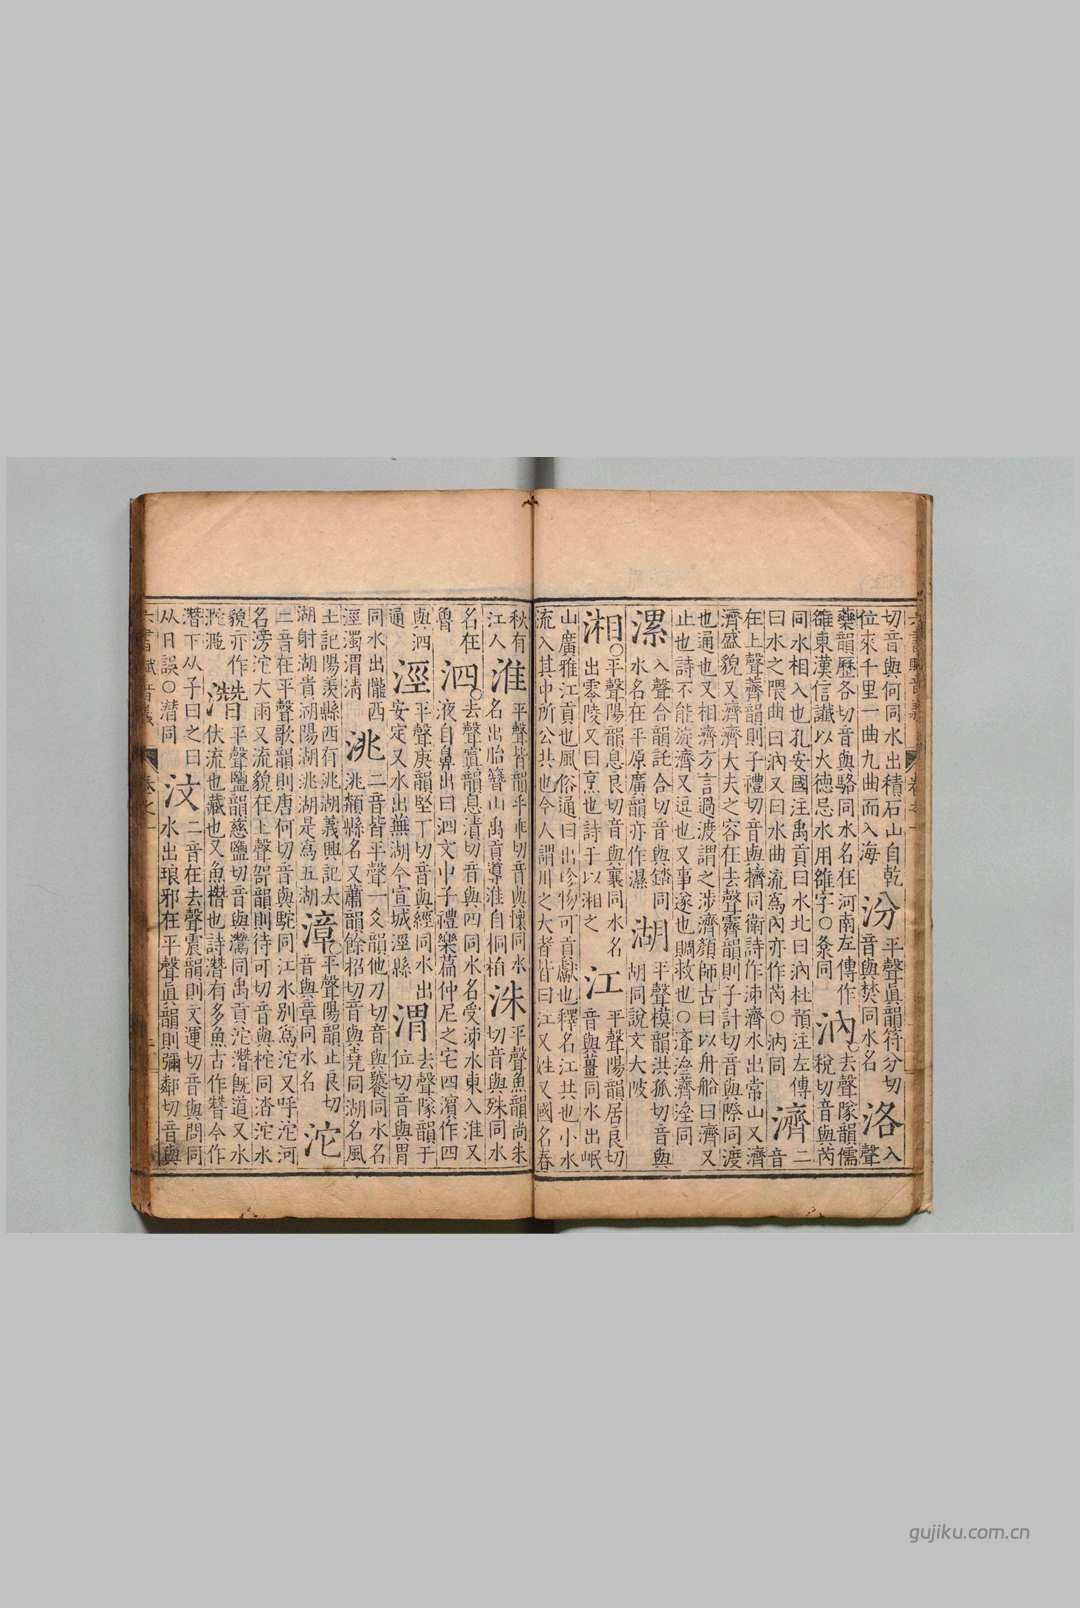 六書賦音義
卷之一
切音與何同水出積石山自乾
位來千里一曲九曲而入海
汾
平聲眞韻符分切
音與焚同水名
洛
入
聲
藥韻歷各切音與駱同水名在河南左傳作
雒東漢信讖以火德忌水用雒字○同
汭
去聲隊韻儒
稅切音與芮
同水相入也孔安國注禹貢曰水北曰汭杜預注左傳
曰水之隈曲曰汭又曰水曲流爲內亦作芮○汭同
濟
二
音
在上聲薺韻則子禮切音與擠同衛詩作泲濟水出常山又濟
濟盛貌又濟濟大夫之容在去聲霽韻則子計切音與際同渡
也通也又相濟方言過渡謂之涉濟顏師古曰以舟船曰濟又
止也詩不能旋濟又逗也又事遂也賙救也○同
漯
入聲合韻託合切音與錔同
水名在平原廣韻亦作濕
湖
平聲模韻洪孤切音與
胡同說文大陂
湘
○平聲陽韻息良切音與襄同水名
出零陵又曰烹也詩于以湘之
江
平聲陽韻居良切
音與薑同水出岷
山廣雅江貢也風俗通曰出珍物可貢獻也釋名江共也小水
流入其中所公共也今人謂川之大者皆曰江又姓又國名春
秋有
江人
淮
平聲皆韻乎乖切音與懷同水
名出胎簪山禹貢導淮自桐柏
洙
平聲魚韻尚朱
切音與殊同水
名在
魯
泗
○去聲寘韻息漬切音與四同水名受泲水東入淮又
液自鼻出曰泗文中子禮樂篇仲尼之宅四濱作四
與泗
通
涇
平聲庚韻堅丁切音與經同水出
安定又水出蕪湖今宣城涇縣
渭
去聲隊韻于
位切音與胃
同水出隴西
涇濁渭清
洮
二音皆平聲一爻韻他刀切音與同水名
洮縣名又蕭韻餘招切音與堯同湖名風
土記陽羨縣西有洮湖義興記太
湖射湖貴湖陽湖洮湖是爲五湖
漳
平聲陽韻止良切
音與章同水名
沱
二音在平聲歌韻則唐何切音與駝同江水別爲沱又呼沱河
名滂沱大雨又流貌在上聲哿韻則待可切音與柁同沓沱水
貌亦作
潛
平聲鹽韻慈鹽切音與灊同禹貢沱潛旣道又水
伏流也藏也又魚槮也詩潛有多魚古作朁今作
潛下从子曰之曰
从日誤○潛同
汶
二音在去聲震韻則文運切音與問同
水出琅邪在平聲眞韻則彌鄰切音與
六書賦音義
卷之一
gujiku.com.cn